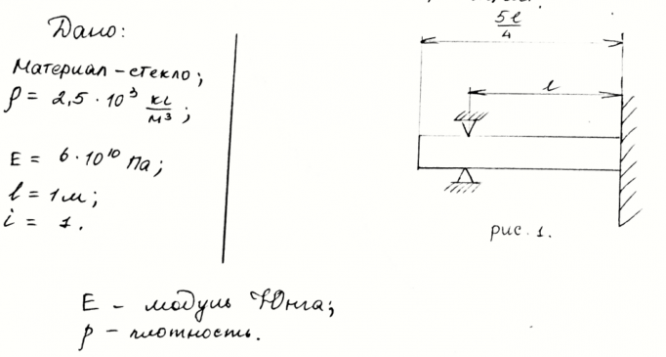 Дано:
Материал - стекло;
ρ = 2,5 · 10³ кг/м³;
E = 6 · 10¹⁰ Па;
l = 1 м;
i = 1.
5l/4
l
рис. 1.
E - модуль Юнга;
ρ - плотность.